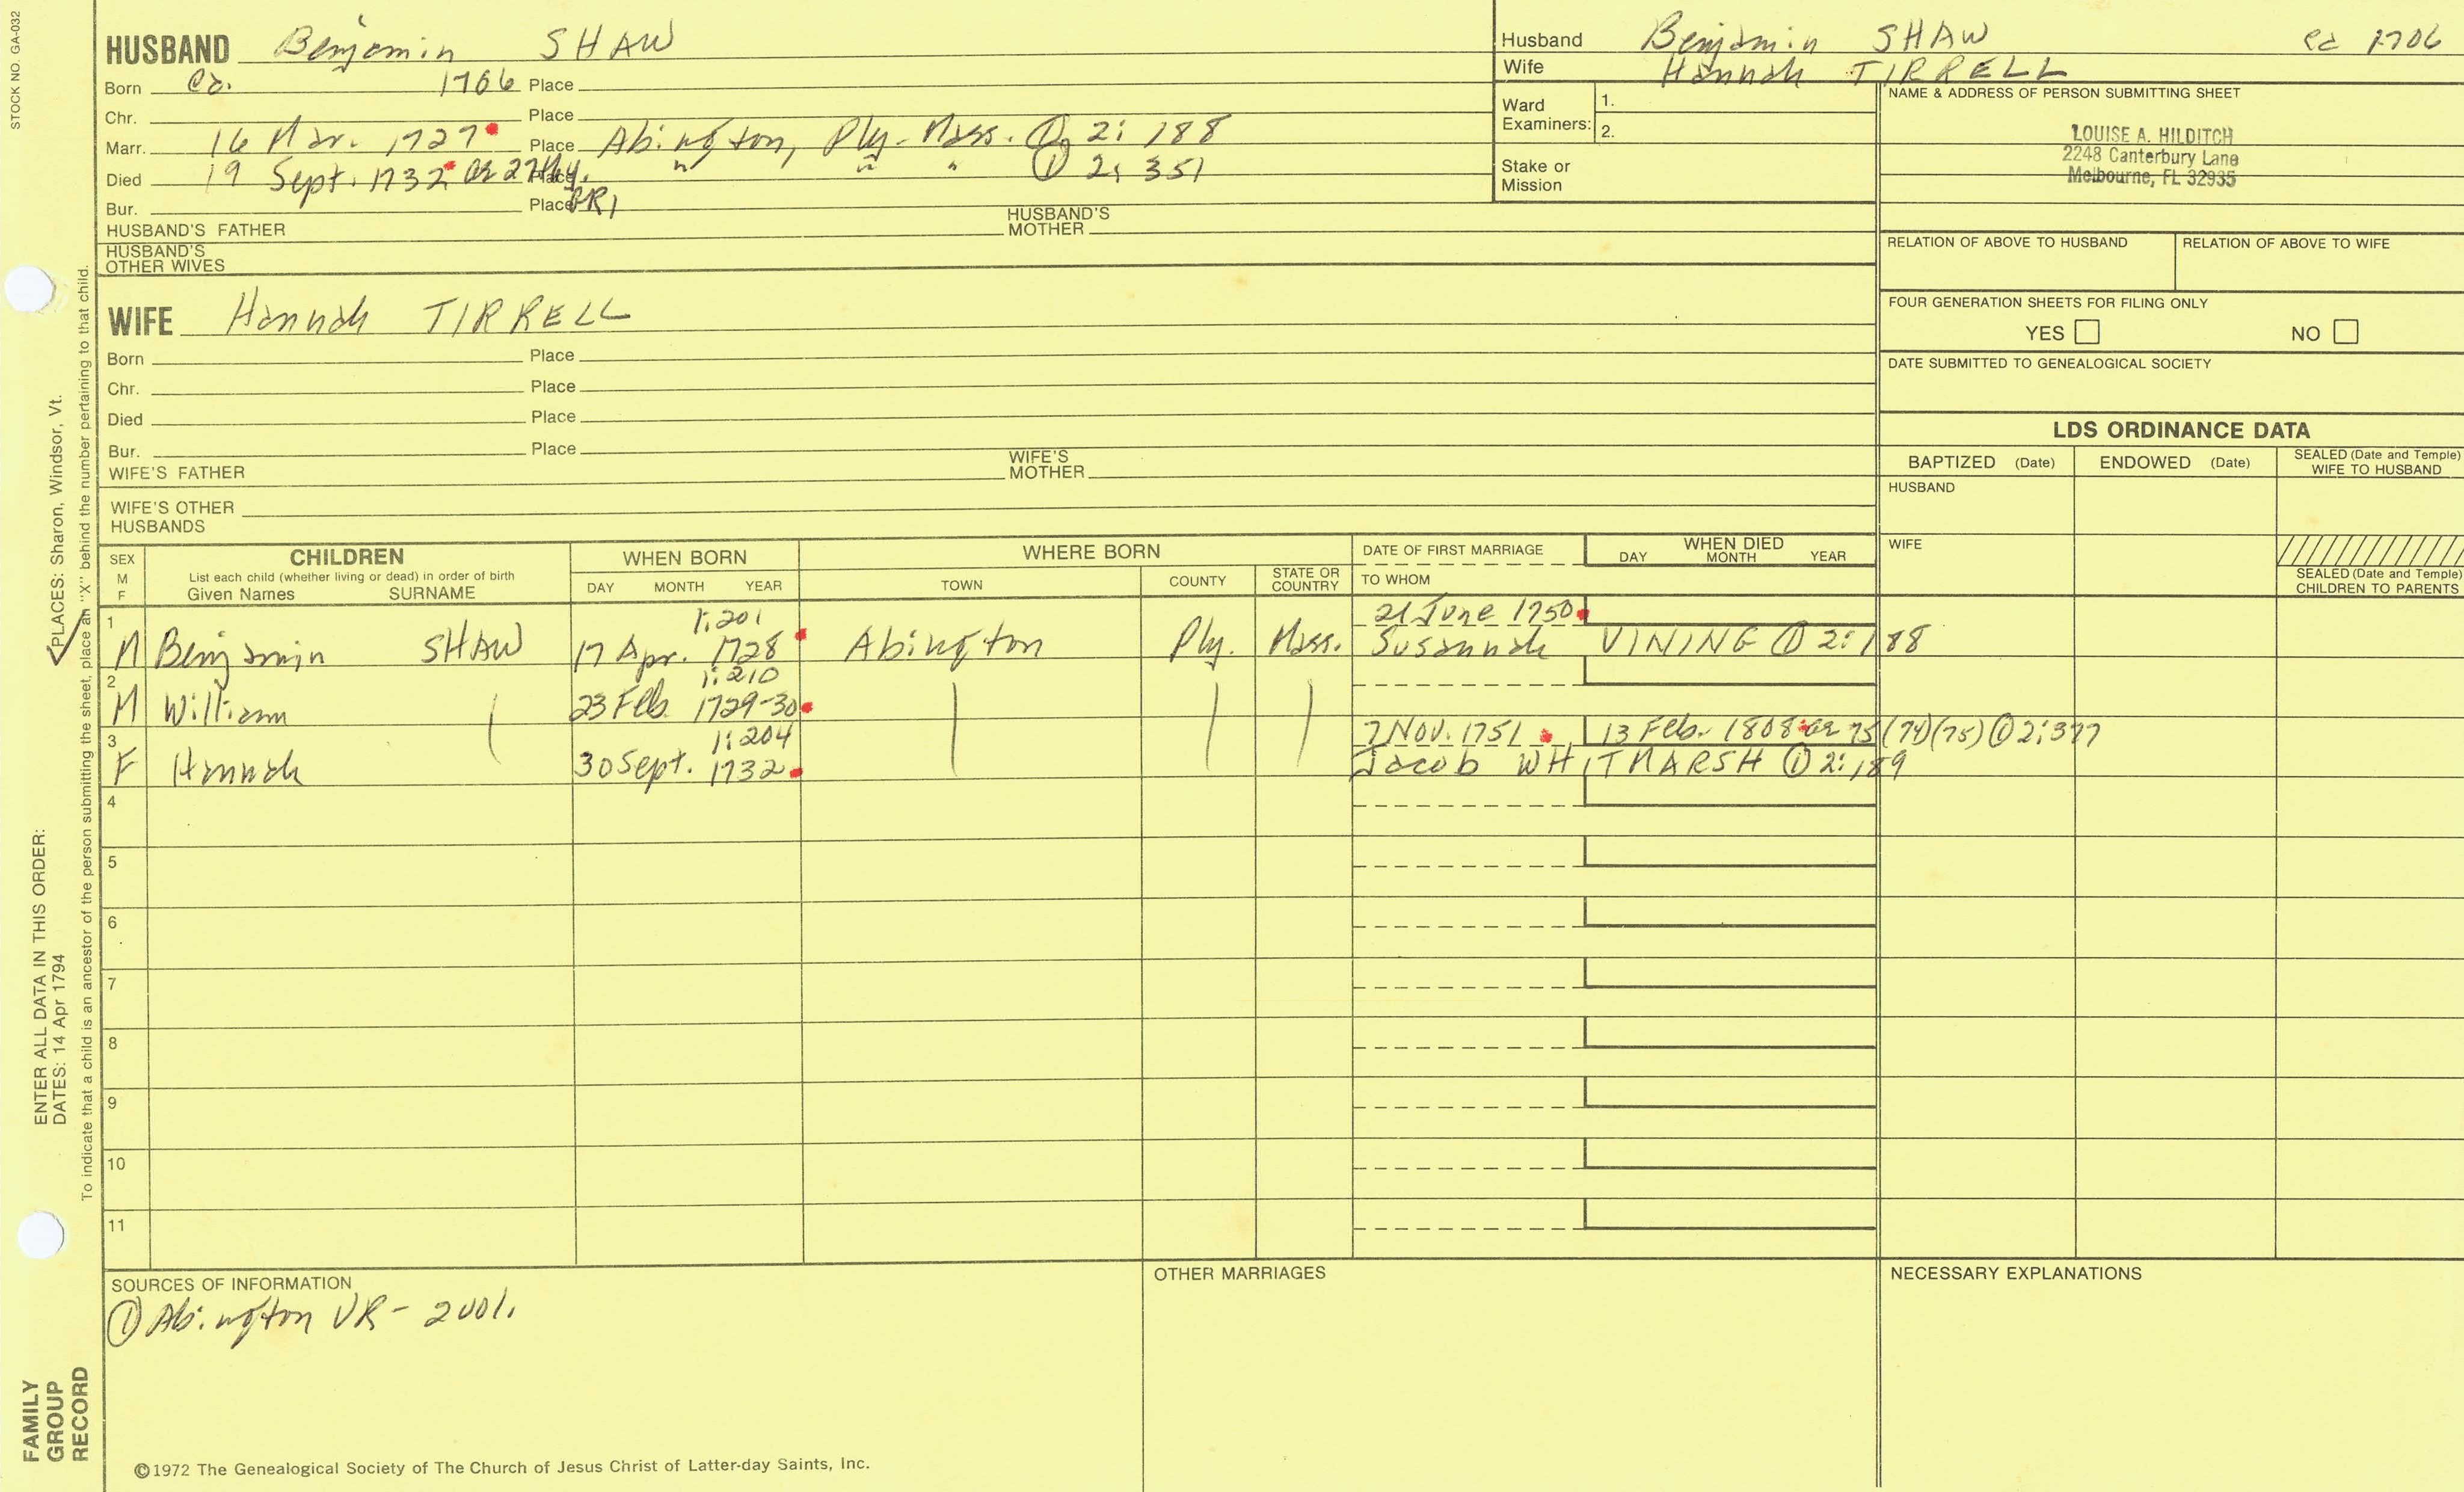 STOCK NO. GA-032
HUSBAND Benjamin SHAW
Born ca. 1706 Place
Chr. Place
Marr. 16 Mar. 1727 Place Abington, Ply. Mass. ① 2: 188
Died 19 Sept. 1732 ae 27th y. Place " " " ① 2: 351
Bur. Place PR1
HUSBAND'S FATHER HUSBAND'S MOTHER
HUSBAND'S OTHER WIVES
Husband Benjamin SHAW ca 1706
Wife Hannah TIRRELL
Ward Examiners: 1.
2.
Stake or Mission
NAME & ADDRESS OF PERSON SUBMITTING SHEET
LOUISE A. HILDITCH
2248 Canterbury Lane
Melbourne, FL 32935
RELATION OF ABOVE TO HUSBAND RELATION OF ABOVE TO WIFE
FOUR GENERATION SHEETS FOR FILING ONLY
YES NO
DATE SUBMITTED TO GENEALOGICAL SOCIETY
WIFE Hannah TIRRELL
Born Place
Chr. Place
Died Place
Bur. Place
WIFE'S FATHER WIFE'S MOTHER
WIFE'S OTHER HUSBANDS
LDS ORDINANCE DATA
BAPTIZED (Date) ENDOWED (Date) SEALED (Date and Temple) WIFE TO HUSBAND
HUSBAND
WIFE
SEALED (Date and Temple) CHILDREN TO PARENTS
SEX M F
CHILDREN
List each child (whether living or dead) in order of birth
Given Names SURNAME
WHEN BORN
DAY MONTH YEAR
WHERE BORN
TOWN COUNTY STATE OR COUNTRY
DATE OF FIRST MARRIAGE
TO WHOM
WHEN DIED
DAY MONTH YEAR
1 1:201 21 June 1750
M Benjamin SHAW 17 Apr. 1728 Abington Ply. Mass. Susannah VINING ① 2:188
2 1:210
M William 23 Feb. 1729-30
3 1:204 7 Nov. 1751 13 Feb. 1808 ae 75 (74)(75) ① 2:377
F Hannah 30 Sept. 1732 Jacob WHITMARSH ① 2:189
4
5
6
7
8
9
10
11
SOURCES OF INFORMATION
① Abington VR - 2 vol.
OTHER MARRIAGES
NECESSARY EXPLANATIONS
©1972 The Genealogical Society of The Church of Jesus Christ of Latter-day Saints, Inc.
FAMILY GROUP RECORD
ENTER ALL DATA IN THIS ORDER:
DATES: 14 Apr 1794
PLACES: Sharon, Windsor, Vt.
To indicate that a child is an ancestor of the person submitting the sheet, place an "X" behind the number pertaining to that child.